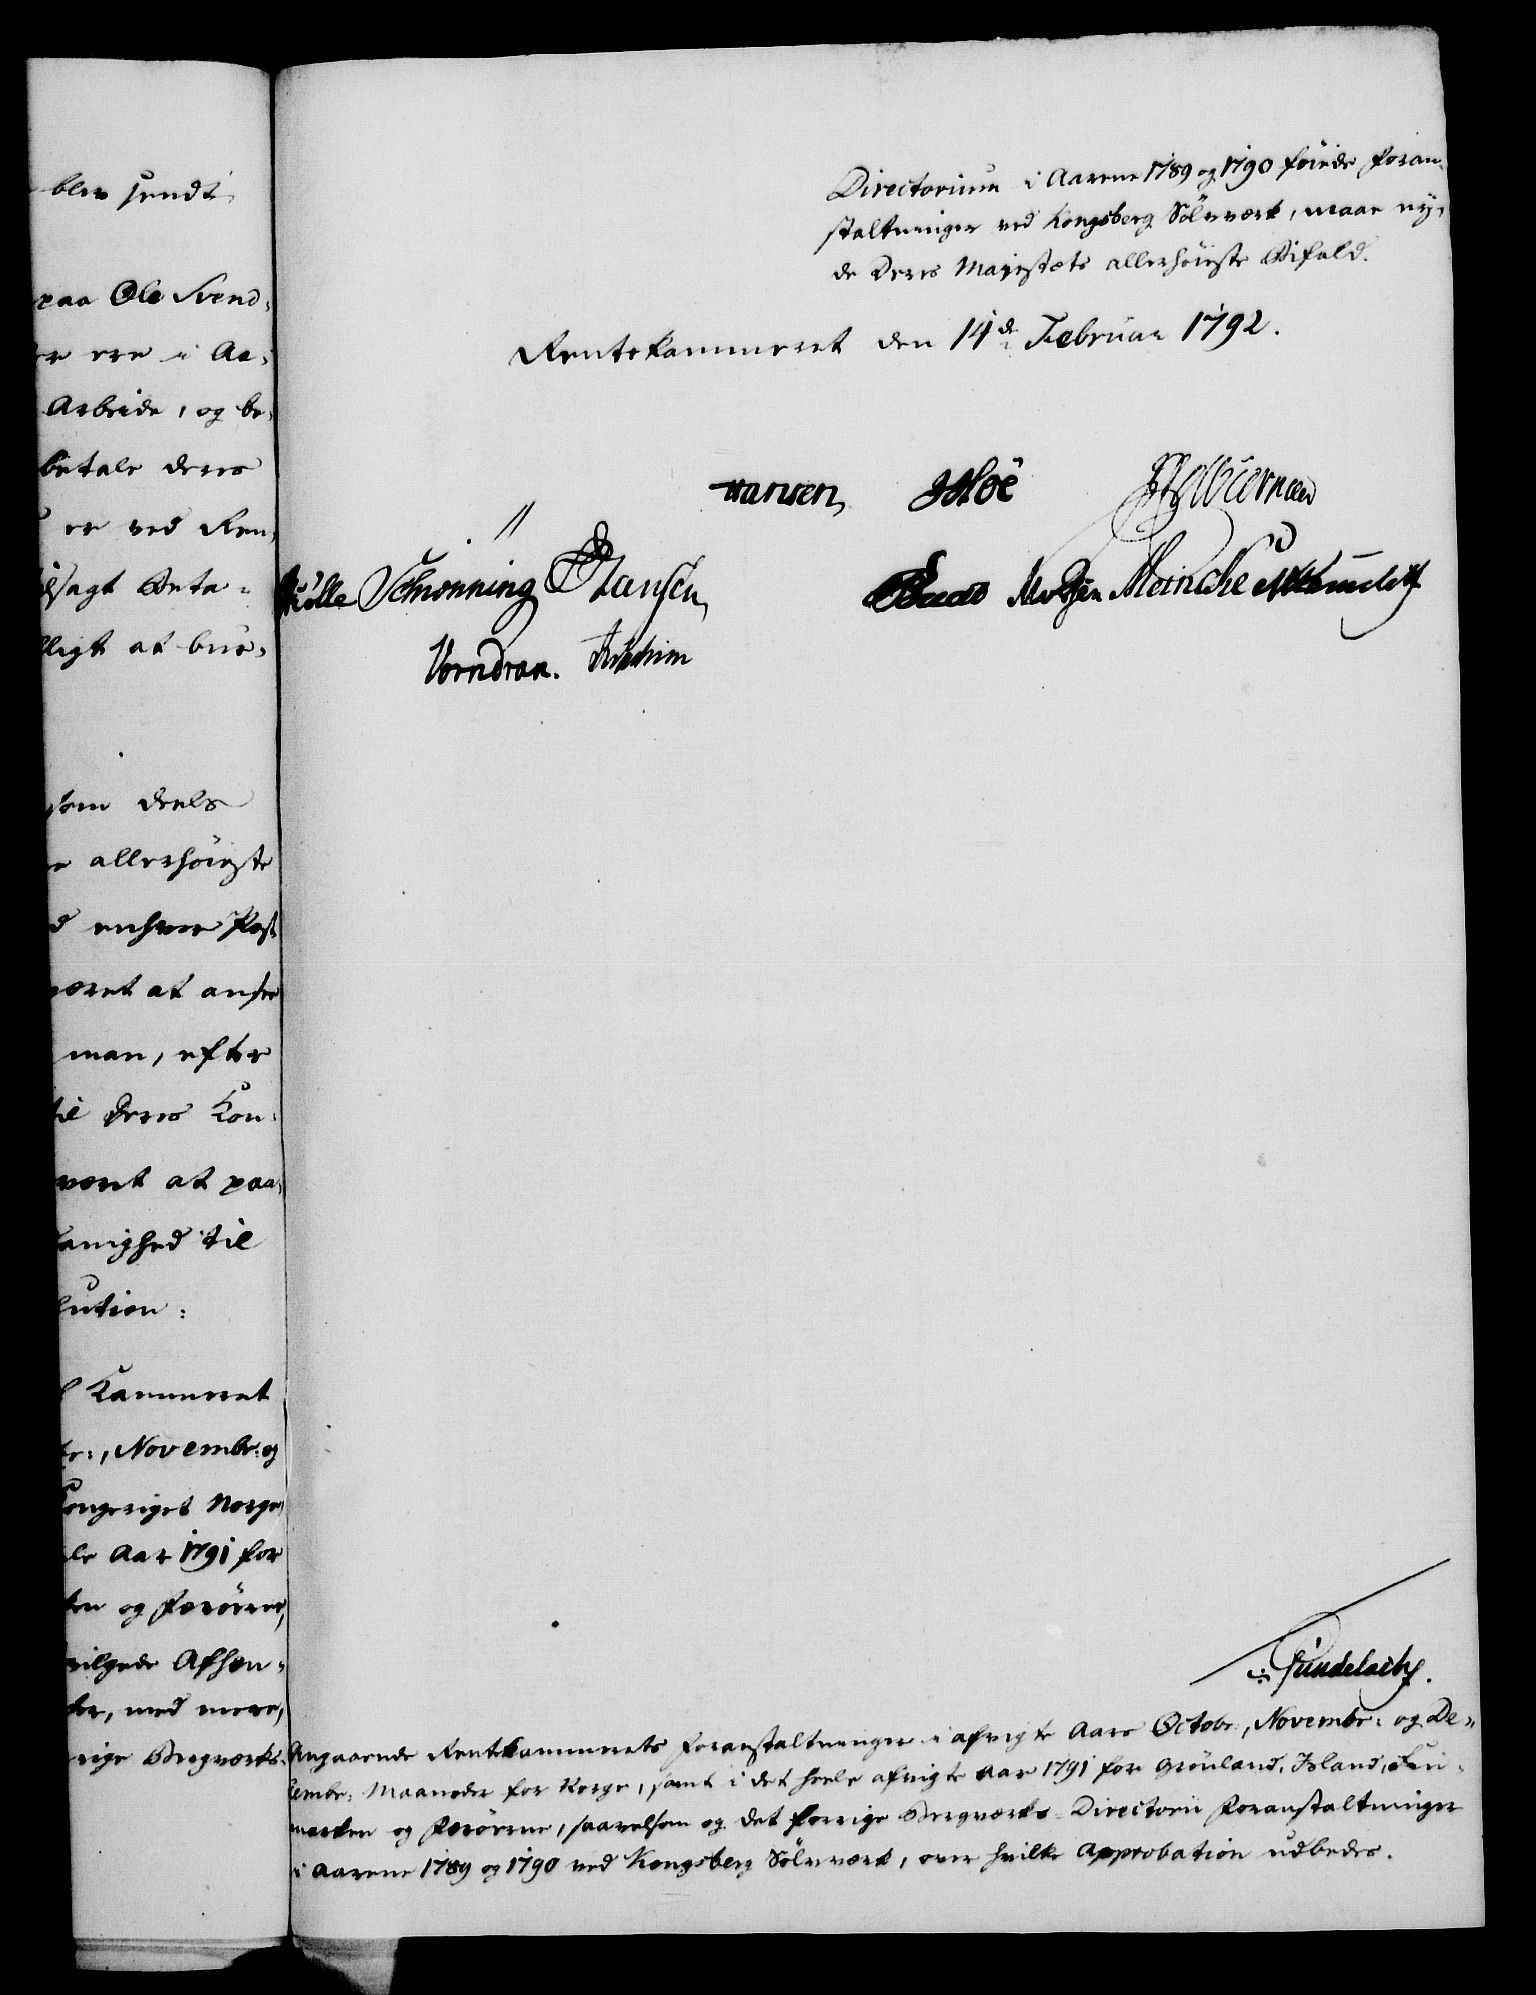 blev sendt
paa Ole Svend-
er ere i Aa-
Arbeide, og be-
betale deres
er ved Ren-
lsagt Beta-
lligt at bur-
som deels
allerhöieste
enhver Post
været at ansee
man, efter
til Deres Kon-
været at paa-
danighed til
lution:
Kammeret
Novembr: og
Kongeriget Norge
Aar 1791 for
og Færöerne,
Afhæn-
med mere,
rige Bergværks-
Directorium i Aarene 1789 og 1790 föiede Foran-
staltninger ved Kongsberg Sölvværk, maae ny-
de Deres Majestæts allerhöieste Bifald.
Rentekammeret den 14de Februar 1792.
Hansen JHoë
Schionning Hansen Meinche
Vorndran.
Gundelach.
Angaaende Rentekammerets Foranstaltninger i afvigte Aars Octobr:, Novembr: og De-
cembr: Maaneder for Norge, samt i det heele afvigte Aar 1791 for Grönland, Island, Fin-
marken og Færöerne, saavelsom og det forrige Bergværks-Directorii Foranstaltninger
i Aarene 1789 og 1790 ved Kongsberg Sölvværk, over hvilke Approbation udbedes.